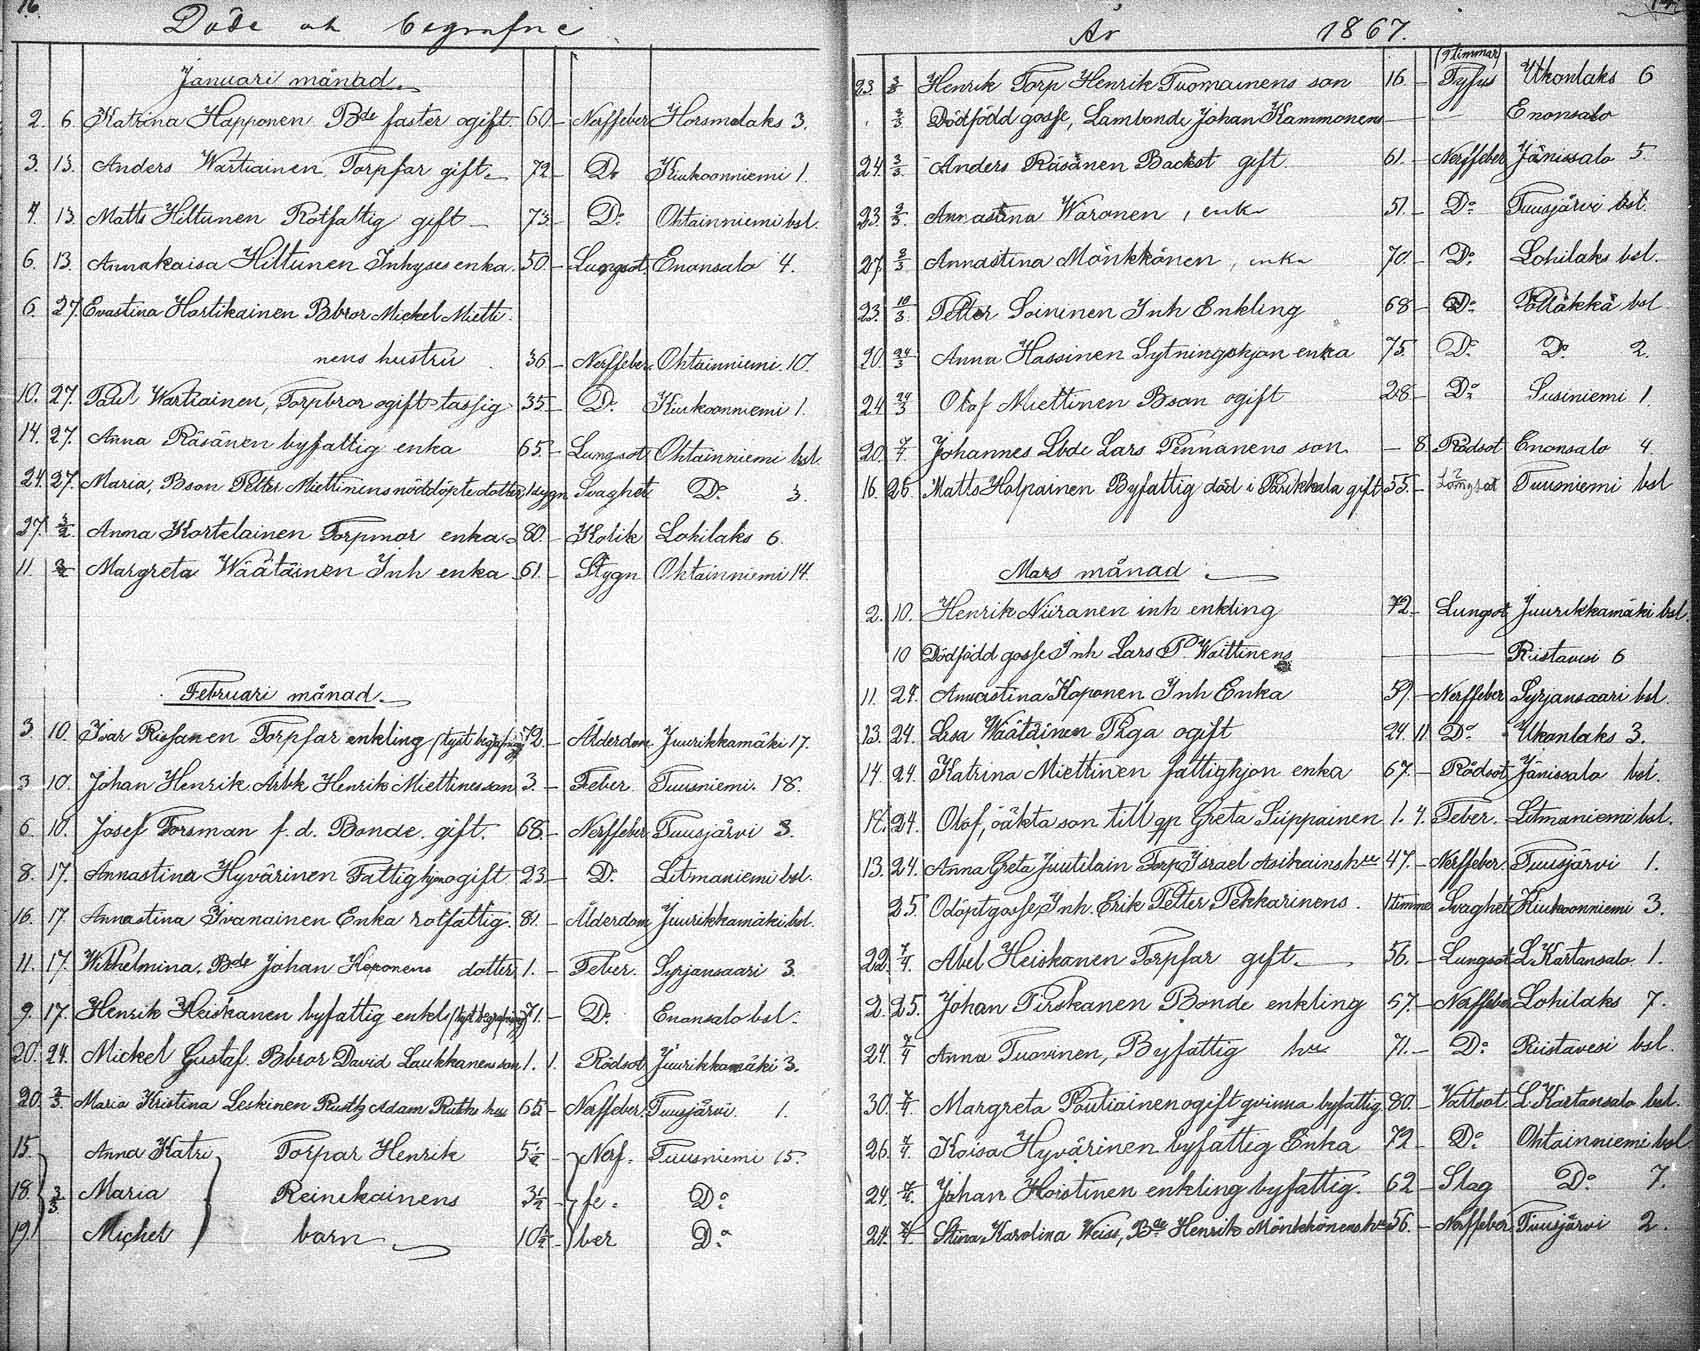 16.
Döde och begrafne
Januari månad.
2. 6. Katrina Happonen Bde faster ogift. 60 – Nerffeber Horsmalaks 3.
3. 13. Anders Wartiainen Torpfar gift 72 – Do Kiukoonniemi 1.
4. 13. Matts Hiltunen Rotfattig gift – 73 – Do Ohtainniemi bsl.
6. 13. Annakaisa Hiltunen Inhyses enka. 50 – Lungsot. Enonsalo 4.
6. 27. Evastina Hartikainen Bbror Mickel Mietti
nens hustru 36 – Nerffeber Ohtainniemi. 10.
10. 27. Paul Wartiainen, Torpbror ogift tassig 35 – Do Kiukoonniemi 1.
14. 27. Anna Räsänen byfattig enka 65 – Lungsot Ohtainniemi bsl.
24. 27. Maria, Bson Petter Miettinens nöddöpte dotter 1 dygn Svaghet Do 3.
27. 3/2 Anna Kortelainen Torpmor enka 80. – Kolik Lohilaks 6.
11. 3/2 Margreta Wäätäinen Inh enka 61. – Stygn Ohtainniemi 14.
Februari månad.
3. 10. Ivar Rissanen Torpfar enkling (tyst begrafning) 72. – Ålderdom Juurikkamäki 17.
3 10. Johan Henrik Arbk Henrik Miettinens son 3. – Feber. Tuusniemi. 18.
6. 10. Josef Forsman f.d. Bonde. gift. 68. – Nerffeber. Tuusjärvi 3.
8. 17. Annastina Hyvärinen Fattighjon ogift 23 – Do Litmaniemi bsl.
16. 17. Annastina Ivanainen Enka rotfattig. 81. – Ålderdom Juurikkamäki bsl.
11. 17. Wilhelmina, Bde Johan Koponens dotter 1. – Feber. Syrjansaari 3.
9. 17. Henrik Heiskanen byfattig enkl (tyst begrafning) 71. – Do Enonsalo bsl.
20. 24. Mickel Gustaf. Bbror David Laukkanens son 1. 1. Rödsot Juurikkamäki 3.
20. 3/3 Maria Kristina Leskinen Rusth Adam Ruths hu 65 – Nerffeber. Tuusjärvi. 1.
15. Anna Katri Torpar Henrik 5 1/2 Nerf- Tuusniemi 15.
18. 3/3 Maria Reinikainens 3 1/2 fe- Do
19. Michel barn 10 1/2 ber Do
År 1867.
23. 3/3 Henrik Torp Henrik Tuomainens son 16. – (9 timmar) Tyfus Ukonlaks 6
3/3 Dödfödd gosse, Lambonde Johan Kammonens – Enonsalo
24. 3/3 Anders Räsänen Backst gift 61. – Nerffeber Jänissalo 5.
23 3/3. Annastina Waronen, enka 51. – Do Tuusjärvi bsl.
27. 3/3 Annastina Mönkkönen, enka 70. – Do Lohilaks bsl.
23. 10/3. Petter Soininen Inh Enkling 68 – Do Pölläkkä bsl
20. 24/3 Anna Hassinen Sytningshjon enka 75. Do Do 2.
24. 24/3 Olof Miettinen Bson ogift 28 – Do Susiniemi 1.
20. 7/4. Johannes Lbde Lars Pennanens son – 8. Rödsot Enonsalo 4.
16. 25. Matts Holpainen Byfattig död i Parikkala gift 55. – Lungsot Tuusniemi bsl
Mars månad
2. 10. Henrik Niiranen inh enkling 72 – Lungsot Juurikkamäki bsl.
10 Dödfödd gosse Inh Lars P. Waittinens – Riistavesi 6
11. 24. Annastina Koponen Inh Enka 59. – Nerffeber Syrjansaari bsl.
13. 24. Lisa Wäätäinen Piga ogift 24. 11 Do Ukonlaks 3.
14 24. Katrina Miettinen fattighjon enka 67. – Rödsot Jänissalo bsl.
17. 24. Olof, oäkta son till qp Greta Siippainen 1. 4. Feber. Litmaniemi bsl.
13. 24. Anna Greta Juutilain Torp Israel Asikains hu 47. – Nerffeber. Tuusjärvi 1.
25. Odöpt gosse, Inh. Erik Petter Pekkarinens. 1 timme Svaghet Kiukoonniemi 3.
22. 7/4. Abel Heiskanen Torpfar gift. 56. – Lungsot L. Kartansalo. 1.
2. 25. Johan Pirskanen Bonde enkling 57. – Nerffeber Lohilaks 7.
24. 7/4 Anna Tuovinen, Byfattig hu 71. – Do Riistavesi bsl.
30. 7/4. Margreta Poutiainen ogift qvinna byfattig. 80. – Vattsot L. Kartansalo bsl.
26. 7/4. Kaisa Hyvärinen byfattig Enka 72 – Do Ohtainniemi bsl
24. 7/4. Johan Hoistinen enkling byfattig. 62 – Slag Do 7.
24. 7/4. Stina Karolina Weiss, Bde Henrik Mönkkönens hu 56. – Nerffeber Tuusjärvi 2.